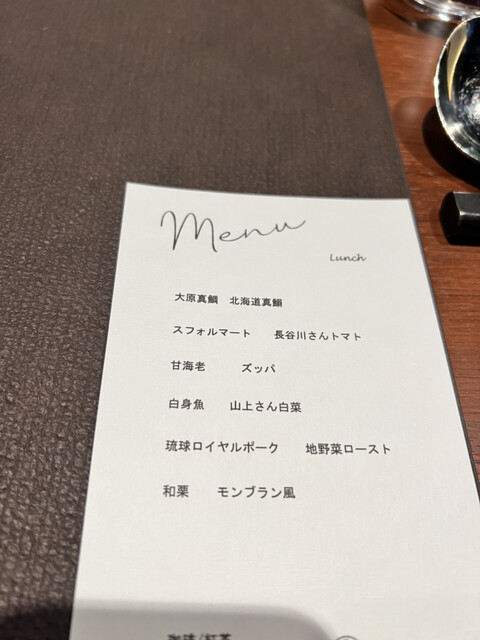 Menu
Lunch
大原真鯛 北海道真鰯
スフォルマート 長谷川さんトマト
甘海老 ズッパ
白身魚 山上さん白菜
琉球ロイヤルポーク 地野菜ロースト
和栗 モンブラン風
珈琲/紅茶